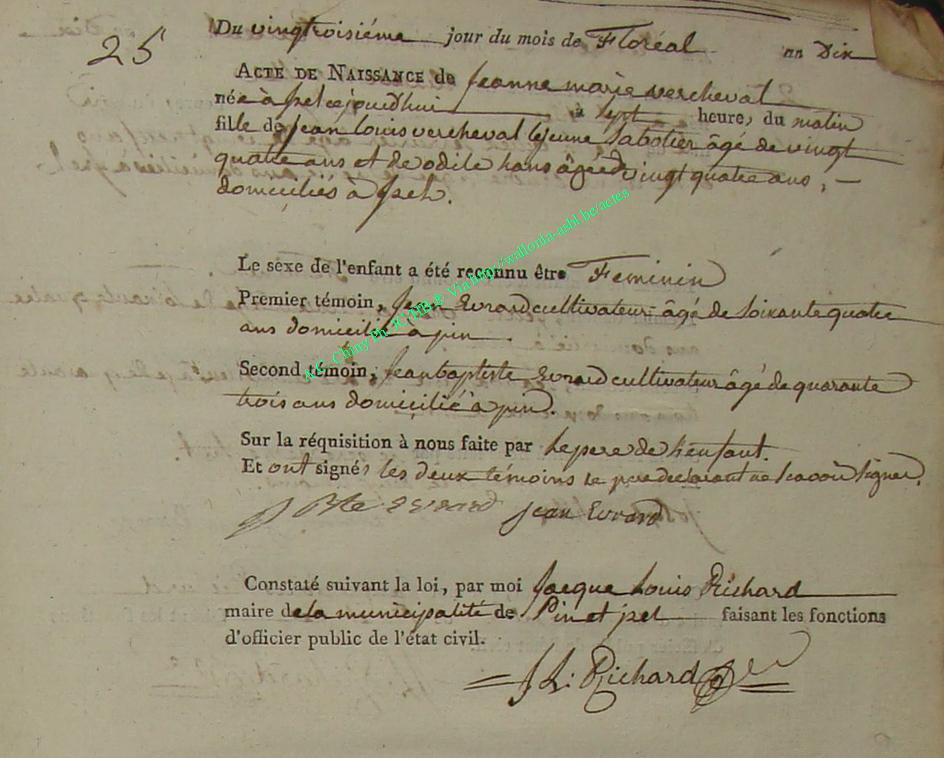 25
Du vingtroisiéme jour du mois de Floréal an Dix
ACTE DE NAISSANCE de Jeanne marie vercheval
née à Jzel cejourdhui à sept heure, du matin
fille de Jean Louis vercheval le jeune Sabotier âgé de vingt
quatre ans et de odile hans âgée de vingt quatre ans,
domiciliés à Jzel.
Le sexe de l'enfant a été reconnu être Feminin
Premier témoin, Jean Evrard cultivateur âgé de soixante quatre
ans domicilié à pin.
Second témoin, Jean baptiste Evrard cultivateur âgé de quarante
trois ans domicilié à pin.
Sur la réquisition à nous faite par le pere de l'enfant.
Et ont signés les deux témoins le pere declarant ne scavoir signer.
J Bte Evrard Jean Evrard
Constaté suivant la loi, par moi Jacque Louis Richard
maire de la municipalité de Pin et jzel faisant les fonctions
d'officier public de l'état civil.
J L: Richard
Via http://wallonia-asbl.be/actes